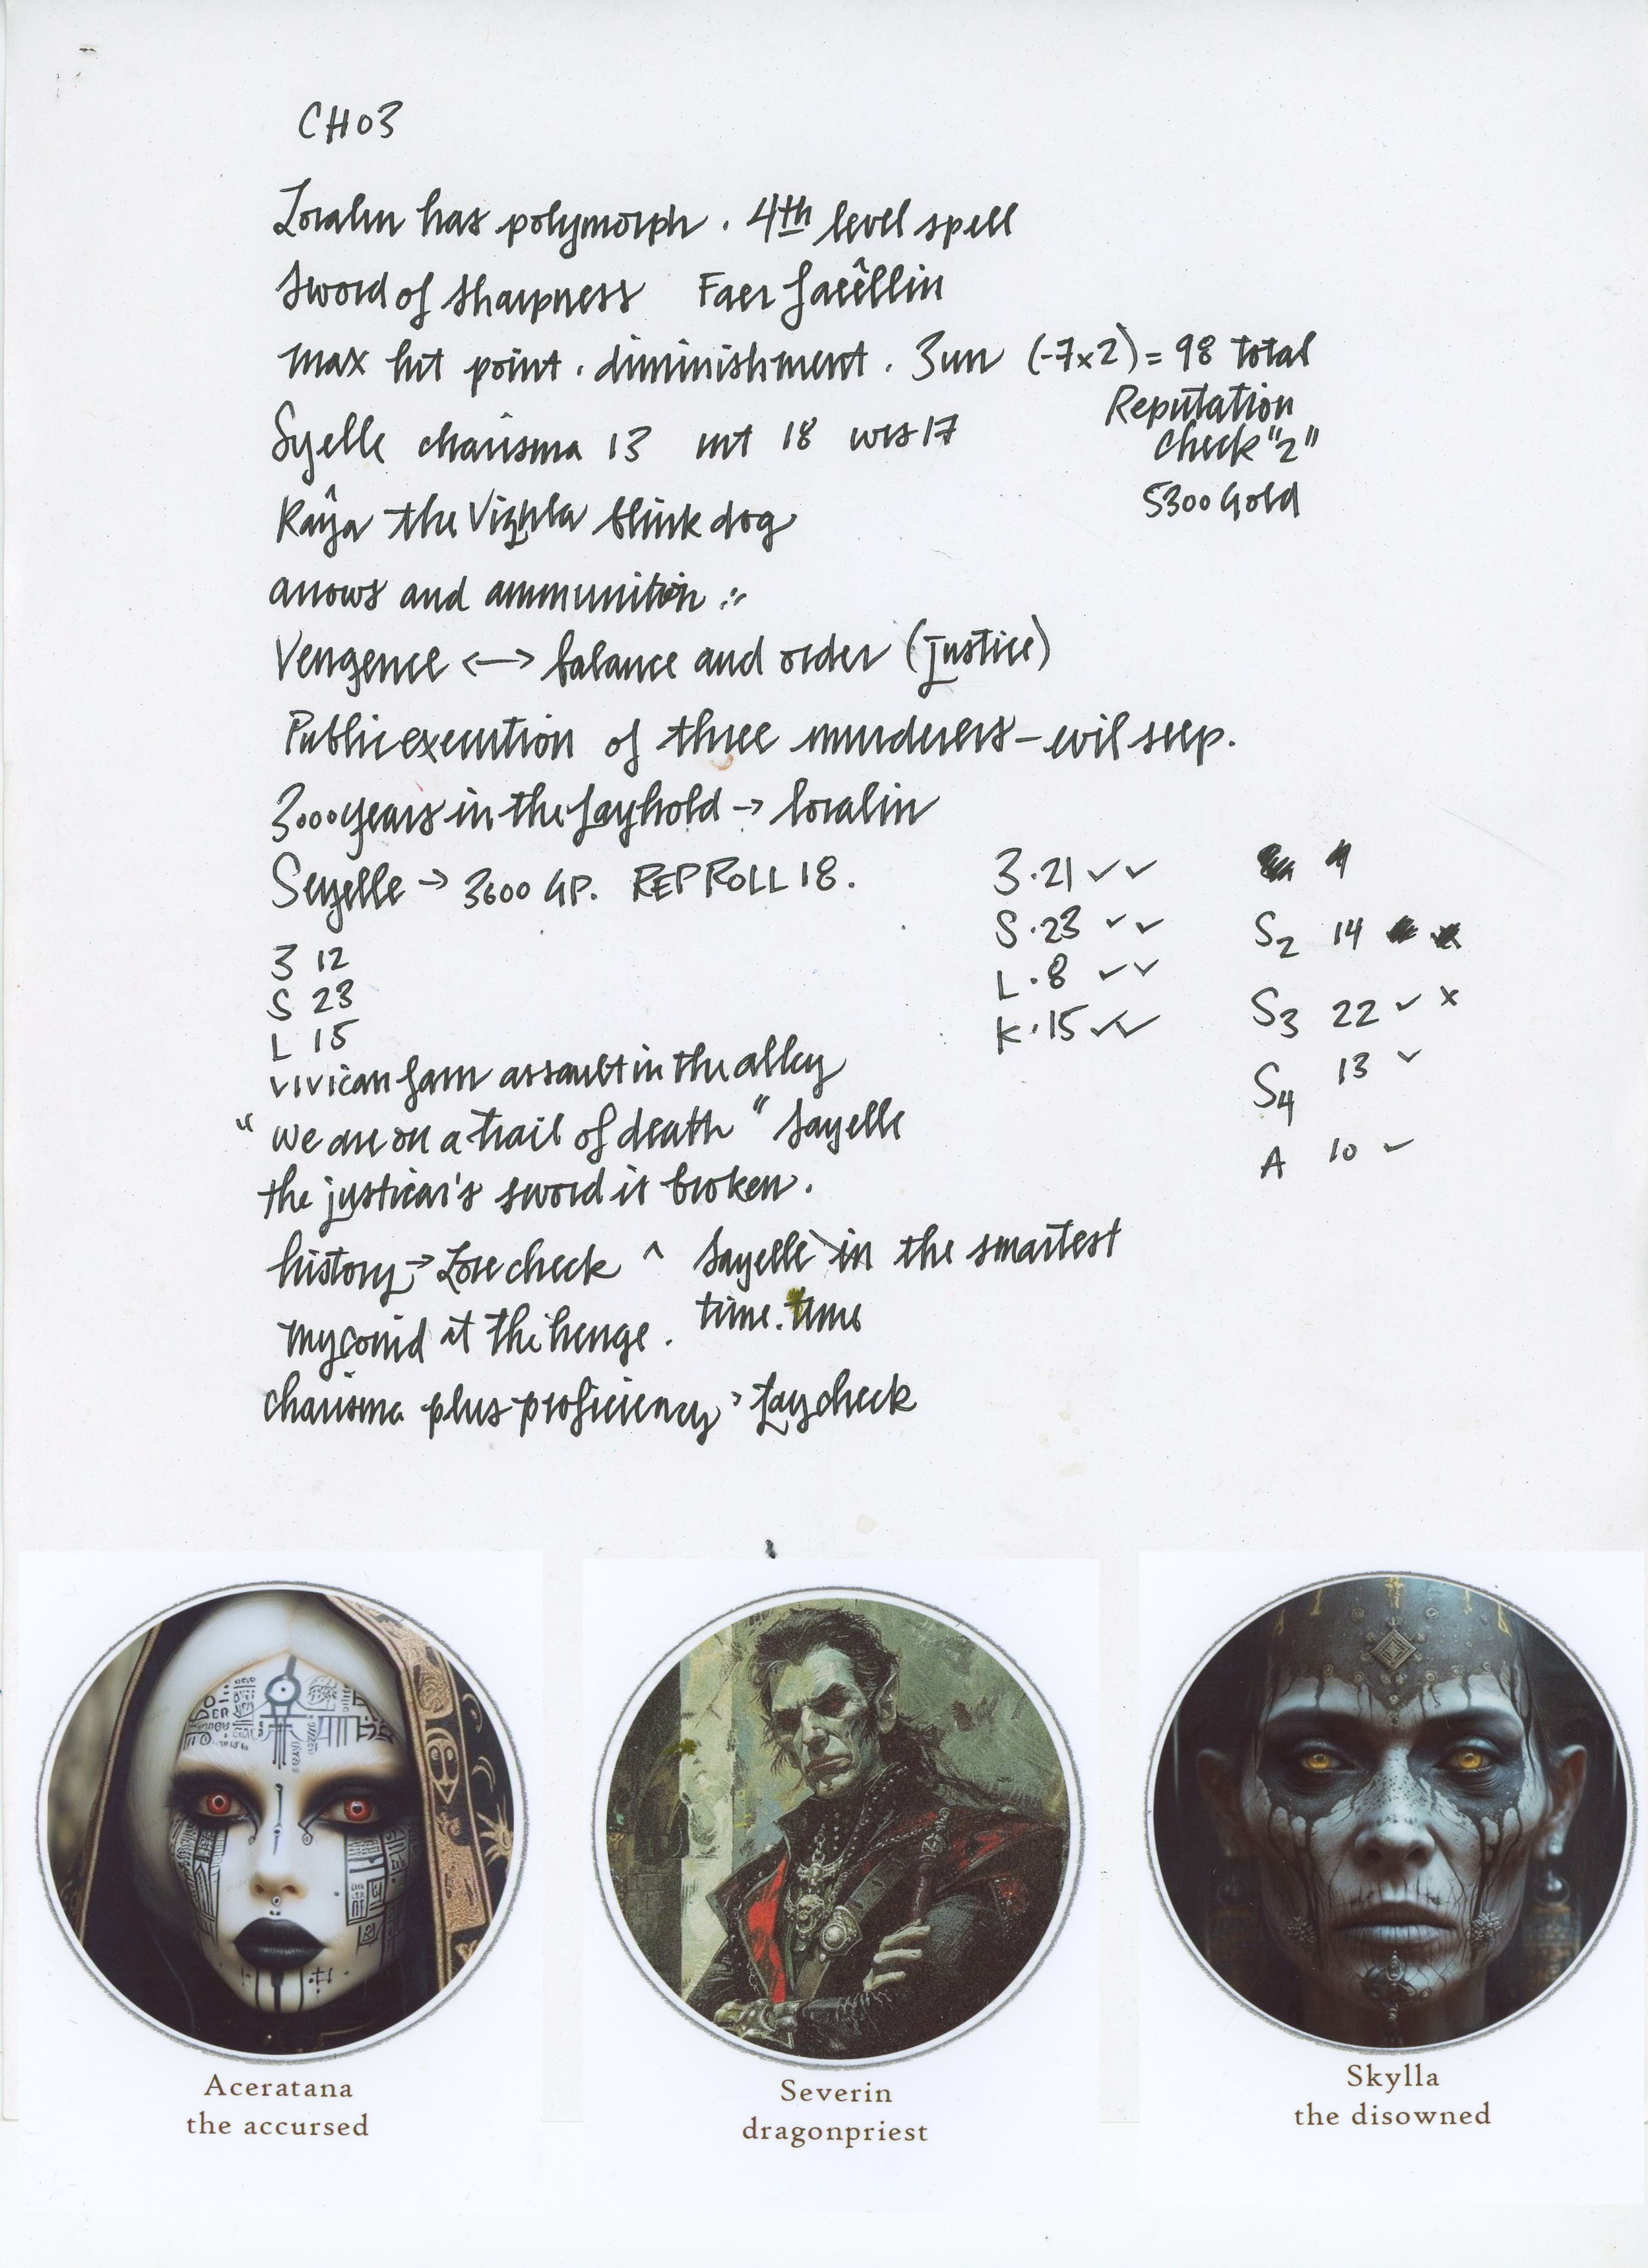 CH03
Loralin has polymorph. 4th level spell
Sword of sharpness Faer faeêllin
max hit point. diminishment. Zun (-7x2) = 98 total
Reputation
check "2"
5300 Gold
Syelle charisma 13 int 18 wis 17
Kâya the Vizhla blink dog
arrows and ammunition
Vengence <-> balance and order (justice)
Public execution of three murderers - evil seep.
3000 years in the fayhold -> loralin
Seyelle -> 3600 GP. REP ROLL 18.
3 12
S 23
L 15
3·21 ✓✓
S·23 ✓✓
L·8 ✓✓
K·15 ✓✓
9
S2 14
S3 22 ✓ x
S4 13 ✓
A 10 ✓
vivican farr assault in the alley
"we are on a trail of death" Sayelle
the justicar's sword is broken.
history -> Lore check ^ Sayelle in the smartest
time. time
myconid at the henge.
charisma plus proficiency > fay check
Aceratana
the accursed
Severin
dragonpriest
Skylla
the disowned